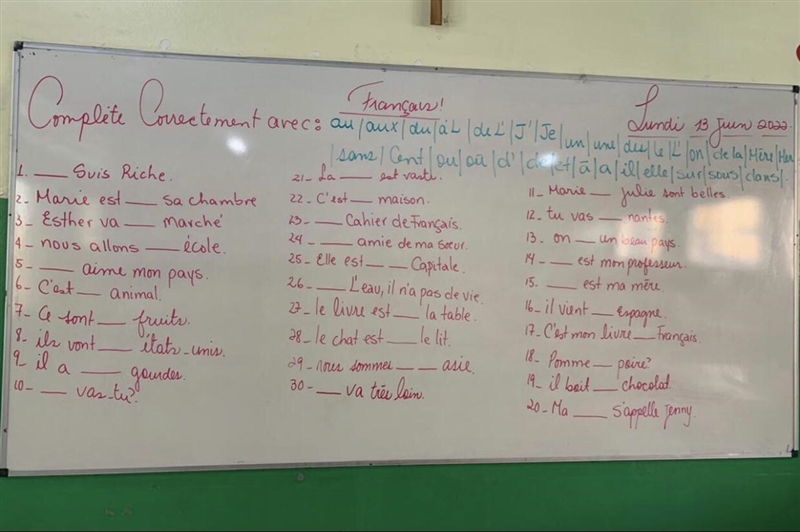 Français!
Lundi 13 Juin 2022.
Complète Correctement avec: au/aux/du/à L'/de L'/J'/Je/un/une/des/le/L'/on/de la/Mère/Mer
/sans/Cent/ou/où/d'/de/et/à/a/il/elle/sur/sous/dans/.
1. ___ Suis Riche.
2- Marie est ___ sa chambre
3- Esther va ___ marché
4- nous allons ___ école.
5- ___ aime mon pays.
6- C'est ___ animal.
7- Ce sont ___ fruits.
8- ils vont ___ états-unis.
9- il a ___ gourdes.
10- ___ vas-tu?
21- La ___ est vaste.
22- C'est ___ maison.
23- ___ Cahier de Français.
24- ___ amie de ma sœur.
25- Elle est ___ ___ Capitale.
26- ___ L'eau, il n'a pas de vie.
27- le livre est ___ la table.
28- le chat est ___ le lit.
29- nous sommes ___ ___ asie.
30- ___ va très loin.
11- Marie ___ julie sont belles.
12- tu vas ___ nantes.
13- on ___ un beau pays.
14- ___ est mon professeur.
15- ___ est ma mère
16- il vient ___ Espagne.
17- C'est mon livre ___ Français.
18- Pomme ___ poire?
19- il boit ___ chocolat.
20- Ma ___ s'appelle Jenny.